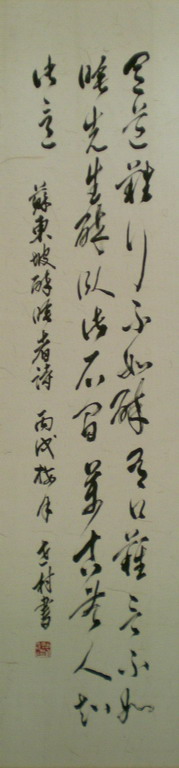 有道難行不如醉有口難言不如
睡先生醉臥此石間萬古無人知
此意
蘇東坡醉睡者詩 丙戌梅月 村書